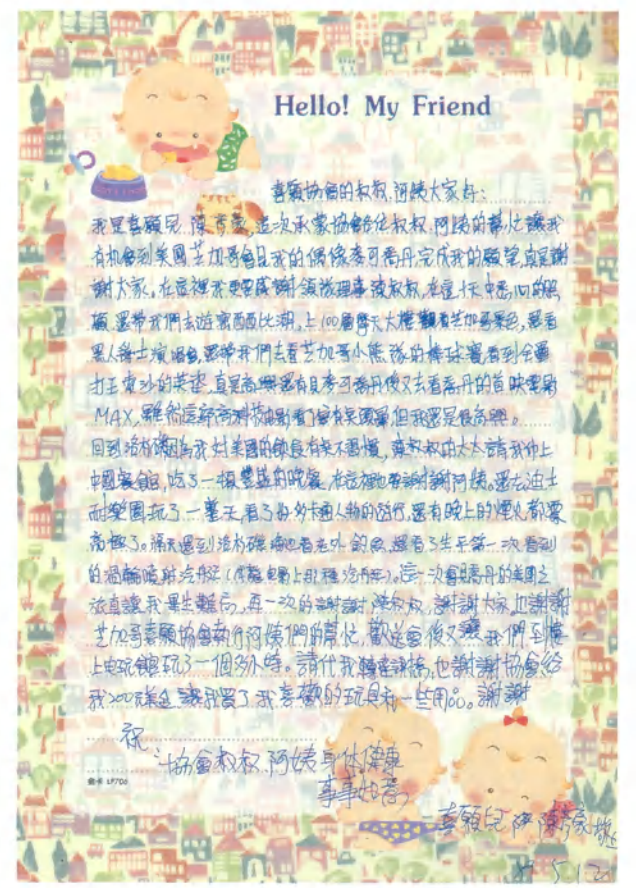 Hello! My Friend
喜願協會的叔叔.阿姨大家好:
我是喜願兒 陳 這次承蒙協會各位叔叔.阿姨的幫忙讓我
有机會到美國芝加哥會見我的偶像麥可喬丹完成我的願望,真是謝
謝大家。在這裡我更要感謝領隊 叔叔,在這十天中悉心的照
顧,還帶我們去遊密西西比湖,上100層摩天大樓觀看芝加哥景色,還看
黑人爵士演唱會,還帶我們去看芝加哥小熊隊的棒球賽,看到全壘
打王索沙的英姿,真是高興,還有見麥可喬丹後又去看喬丹的首映電影
MAX,雖然這種高科技電影看了會有點頭暈,但我還是很高興。
回到洛杉磯因為我對美國的飲食有點不習慣, 叔叔的太太請我們上
中國餐館,吃了一頓豐盛的晚餐,在這裡也要謝謝阿姨。還去迪士
耐樂園玩了一整天,看了好多卡通人物的遊行,還有晚上的煙火都蠻
高興了。隔天還到洛杉磯 海 釣魚,還看了生平第一次看到
的渦輪噴射汽艇(像電影上那種汽艇)。這一次會見喬丹的美國之
旅真讓我畢生難忘,再一次的謝謝 叔叔,謝謝大家,也謝謝
芝加哥喜願協會執行阿姨們的幫忙,歡送會後又讓我們到樓
上電玩館玩了一個多小時。請代我轉達謝意,也謝謝協會給
我200元美金讓我買了我喜歡的玩具和一些用品。謝謝
祝:
協會叔叔.阿姨身体健康
事事如意
喜願兒 陳 敬上
87 5/20